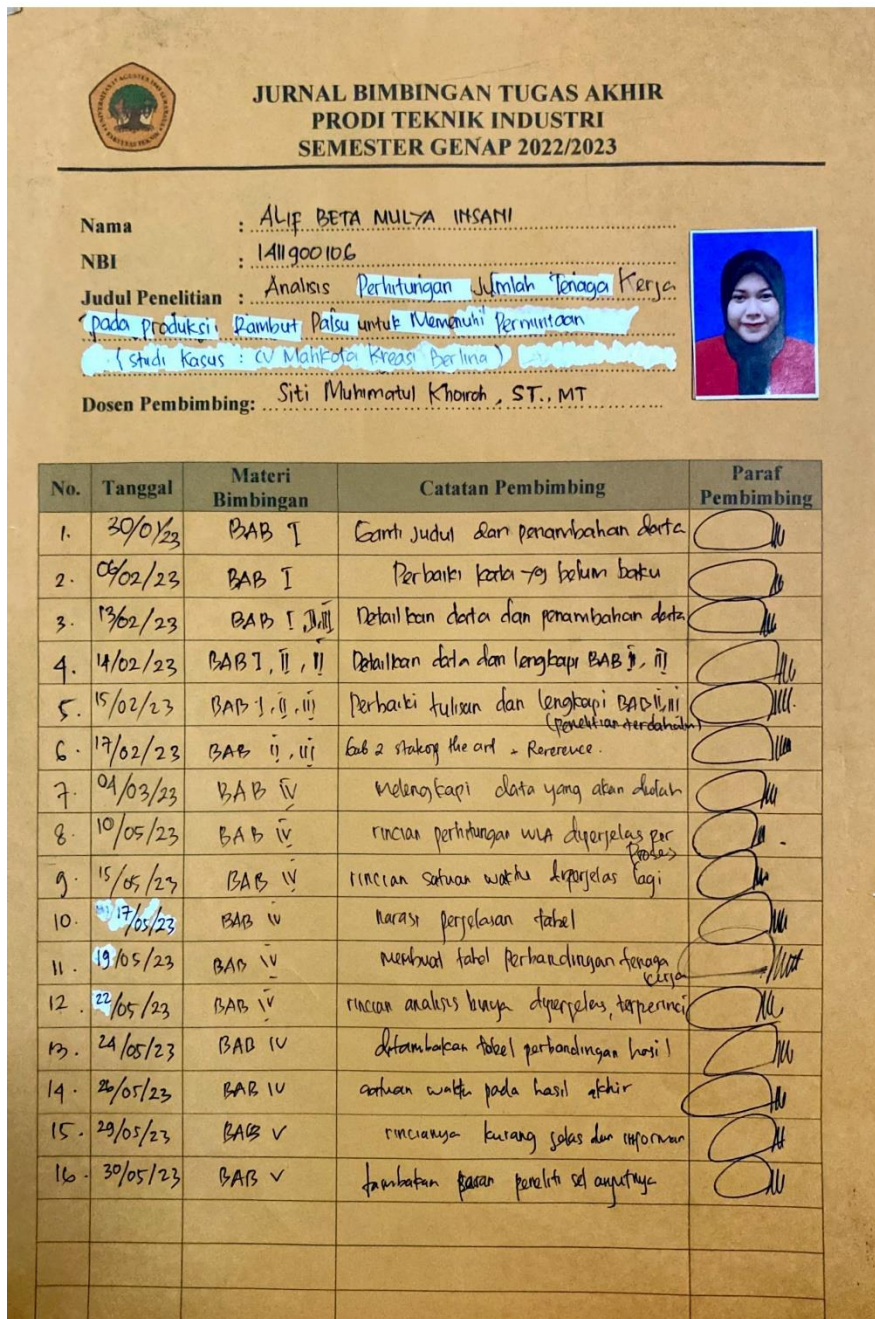 JURNAL BIMBINGAN TUGAS AKHIR
PRODI TEKNIK INDUSTRI
SEMESTER GENAP 2022/2023
Nama : ALIF BETA MULYA INSANI
NBI : 1411900106
Judul Penelitian : Analisis Perhitungan Jumlah Tenaga Kerja
pada produksi Rambut Palsu untuk Memenuhi Permintaan
(Studi Kasus : CV Mahkota Kreasi Berlina)
Dosen Pembimbing: Siti Muhimatul Khoiroh, ST., MT
No. Tanggal Materi Bimbingan Catatan Pembimbing Paraf Pembimbing
1. 30/01/23 BAB I Ganti Judul dan penambahan data
2. 06/02/23 BAB I Perbaiki kata yg belum baku
3. 13/02/23 BAB I, II, III Detailkan data dan penambahan data
4. 14/02/23 BAB I, II, III Detailkan data dan lengkapi BAB II, III
5. 15/02/23 BAB I, II, III Perbaiki tulisan dan lengkapi BAB II, III
(penelitian terdahulu)
6. 17/02/23 BAB II, III Bab 2 the art + Rererence.
7. 04/03/23 BAB IV Melengkapi data yang akan diolah
8. 10/05/23 BAB IV rincian perhitungan WLA diperjelas per
Proses
9. 15/05/23 BAB IV rincian satuan waktu diperjelas lagi
10. 17/05/23 BAB IV narasi penjelasan tabel
11. 19/05/23 BAB IV Membuat tabel Perbandingan tenaga
kerja
12. 22/05/23 BAB IV rincian analisis diperjelas, terperinci
13. 24/05/23 BAB IV ditambahkan tabel perbandingan hasil
14. 26/05/23 BAB IV satuan waktu pada hasil akhir
15. 29/05/23 BAB V rincianya kurang jelas dan
16. 30/05/23 BAB V tambahkan saran peneliti